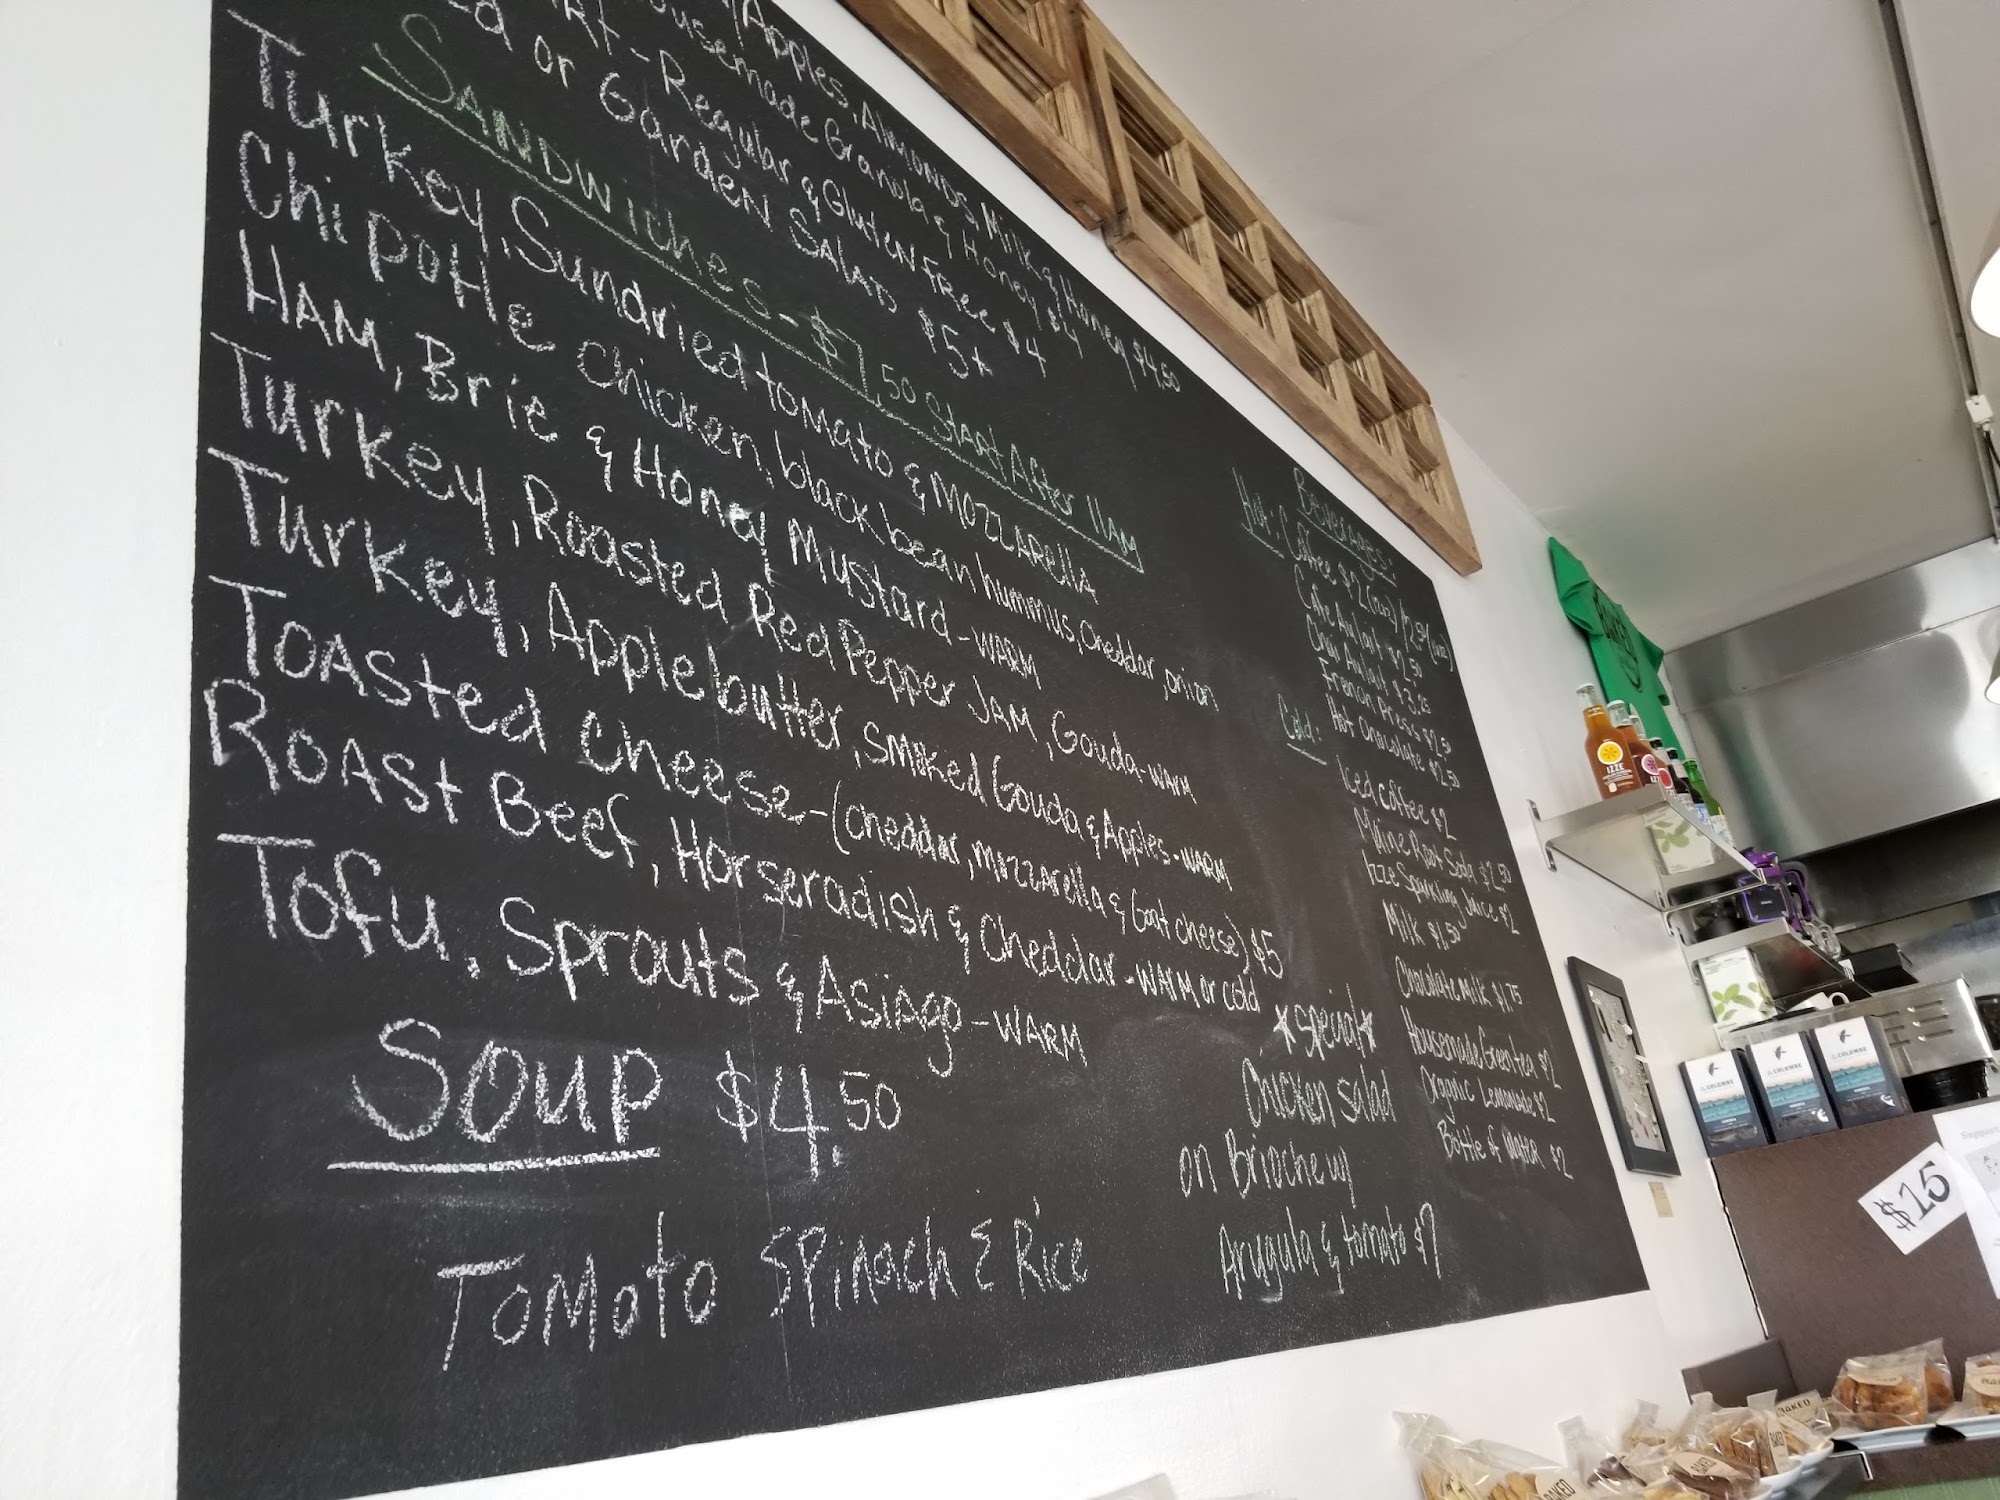 Apples, Almonds, Milk & Honey $4.50
Housemade Granola & Honey $4
- Regular & Gluten Free $4
or Garden Salad $5*
Sandwiches - $7.50 Start After 11AM
Turkey, Sundried tomato & Mozzarella
Chipotle Chicken, black bean hummus, Cheddar, onion
Ham, Brie & Honey Mustard - WARM
Turkey, Roasted Red Pepper JAM, Gouda - WARM
Turkey, Apple butter, Smoked Gouda & Apples - WARM
Toasted Cheese - (Cheddar, Mozzarella & Goat cheese) $5
Roast Beef, Horseradish & Cheddar - WARM or cold
Tofu, Sprouts & Asiago - WARM
Soup $4.50
Tomato Spinach & Rice
*Special*
Chicken salad
on Brioche w/
Arugula & tomato $7
Beverages:
Hot: Coffee $2
Café Au Lait $2.50
Chai Au Lait $3.25
French Press $2.50
Hot Chocolate $2.50
Cold:
Iced coffee $2
Maine Root Soda $2.50
Izze Sparkling Juice $2
Milk $1.50
Chocolate Milk $1.75
Housemade Green tea $2
Organic Lemonade $2
Bottle of Water $2
IZZE
La COLOMBE
La COLOMBE
La COLOMBE
$25
Support
BAKED
BAKED
BAKED
BAKED